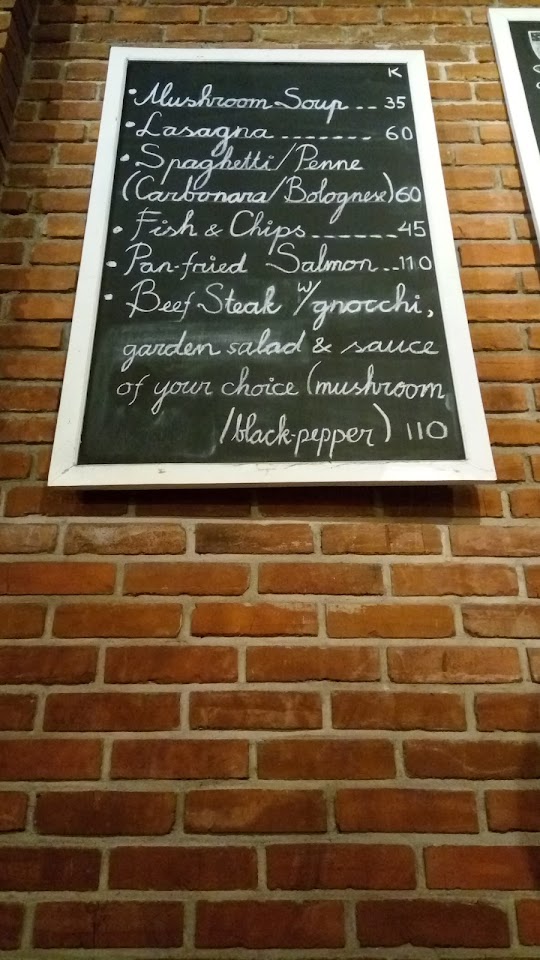 K
• Mushroom Soup ... 35
• Lasagna ........ 60
• Spaghetti/Penne
(Carbonara/Bolognese) 60
• Fish & Chips ....... 45
• Pan-fried Salmon .. 110
• Beef Steak w/ gnocchi,
garden salad & sauce
of your choice (mushroom
/black-pepper) 110